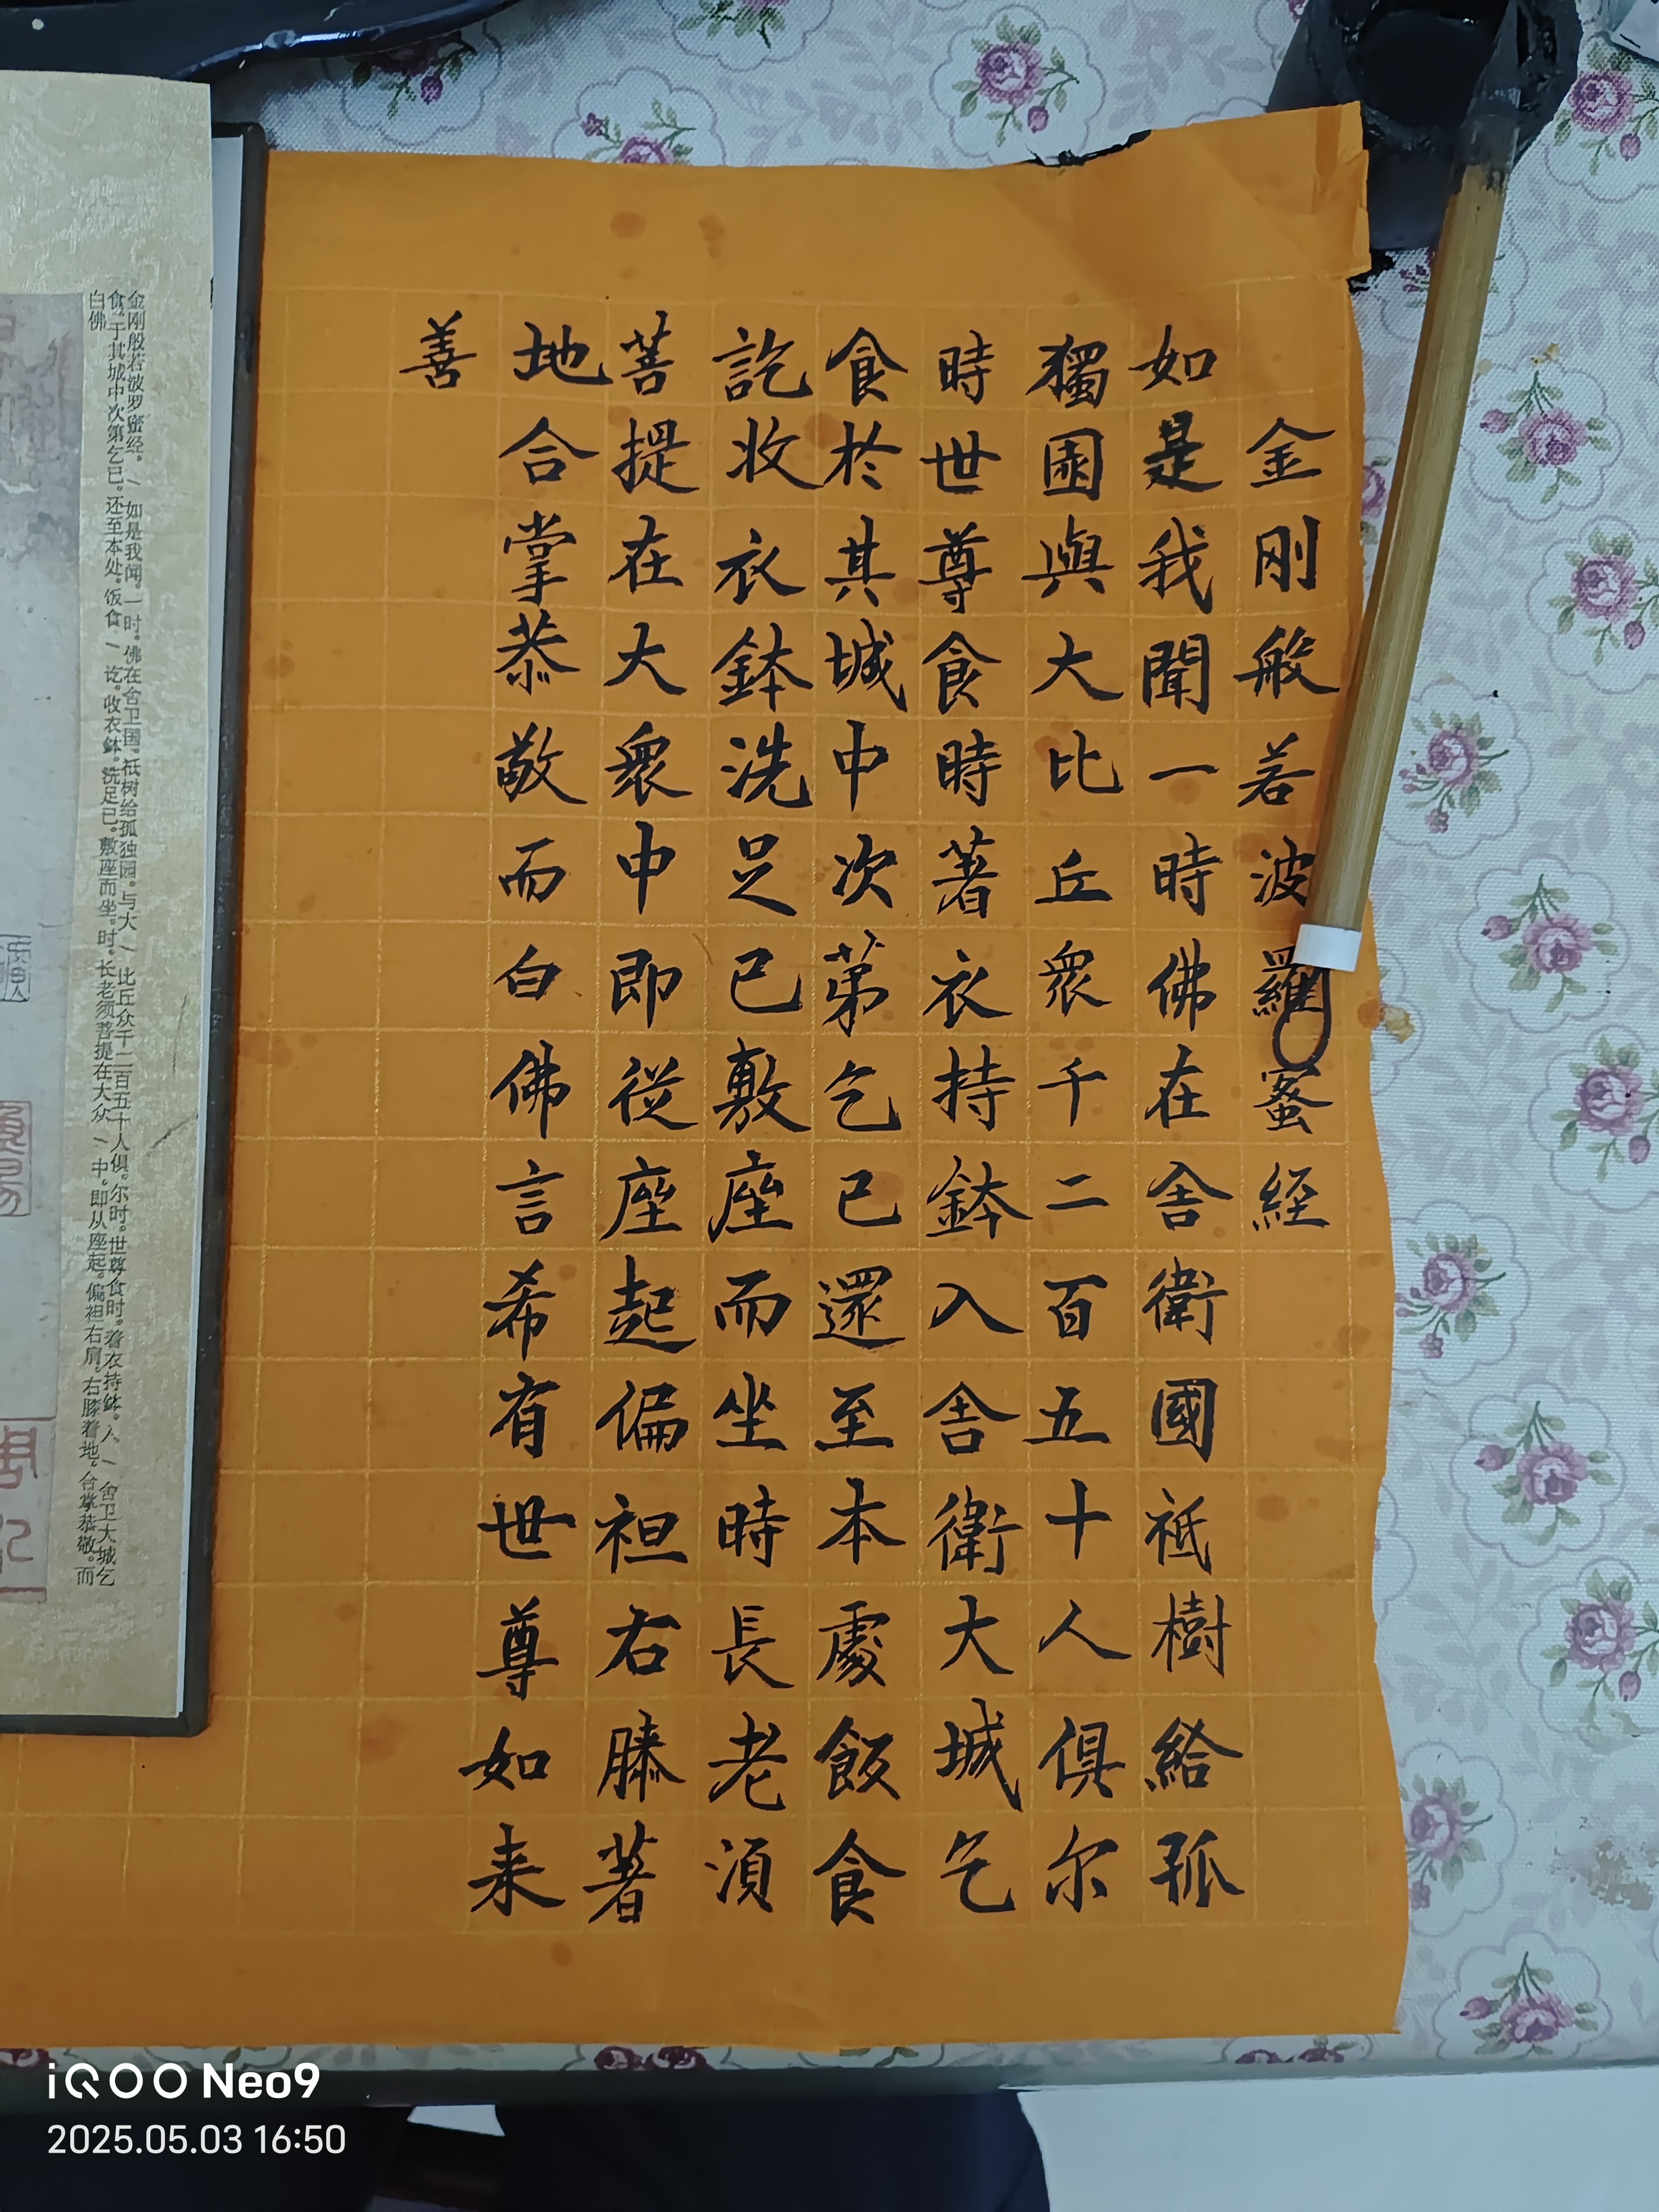 金剛般若波羅蜜經
如是我聞一時佛在舍衛國祇樹給孤
獨園與大比丘衆千二百五十人俱尔
時世尊食時著衣持鉢入舍衛大城乞
食於其城中次第乞已還至本處飯食
訖收衣鉢洗足已敷座而坐時長老須
菩提在大衆中即從座起偏袒右膝著
地合掌恭敬而白佛言希有世尊如来
善
金刚般若波罗蜜经。/如是我闻。一时。佛在舍卫国。祇树给孤独园。与大/比丘众千二百五十人俱。尔时。世尊食时。着衣持钵。入/舍卫大城乞
食。于其城中次第乞已。还至本处。饭食/讫。收衣钵。洗足已。敷座而坐。时。长老须菩提在大众/中。即从座起。偏袒右肩。右膝着地。合掌恭敬。而
白佛
iQOO Neo9
2025.05.03 16:50